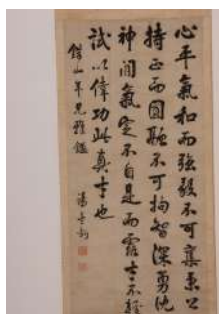 心平氣和而強毅不可奪秉公
持正而圓融不可拘智深勇沈
神閒氣定不自是而露才不輕
試以偉功此真才也
鏡山年兄雅鑑